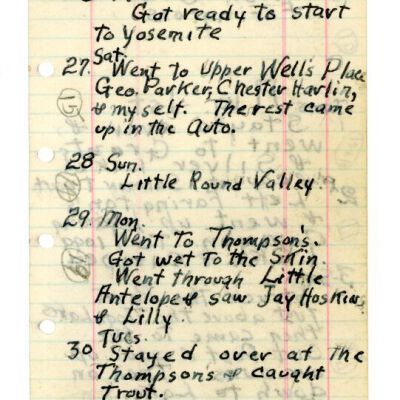 Got ready to start
to Yosemite
Sat.
27. Went to Upper Well's Place
Geo. Parker, Chester Harlin,
& myself. The rest came
up in the Auto.
28 Sun.
Little Round Valley.
29. Mon.
Went To Thompson's.
Got wet To the Skin.
Went through Little
Antelope & saw Jay Hoskins
& Lilly.
Tues.
30 Stayed over at The
Thompsons & caught
Trout.